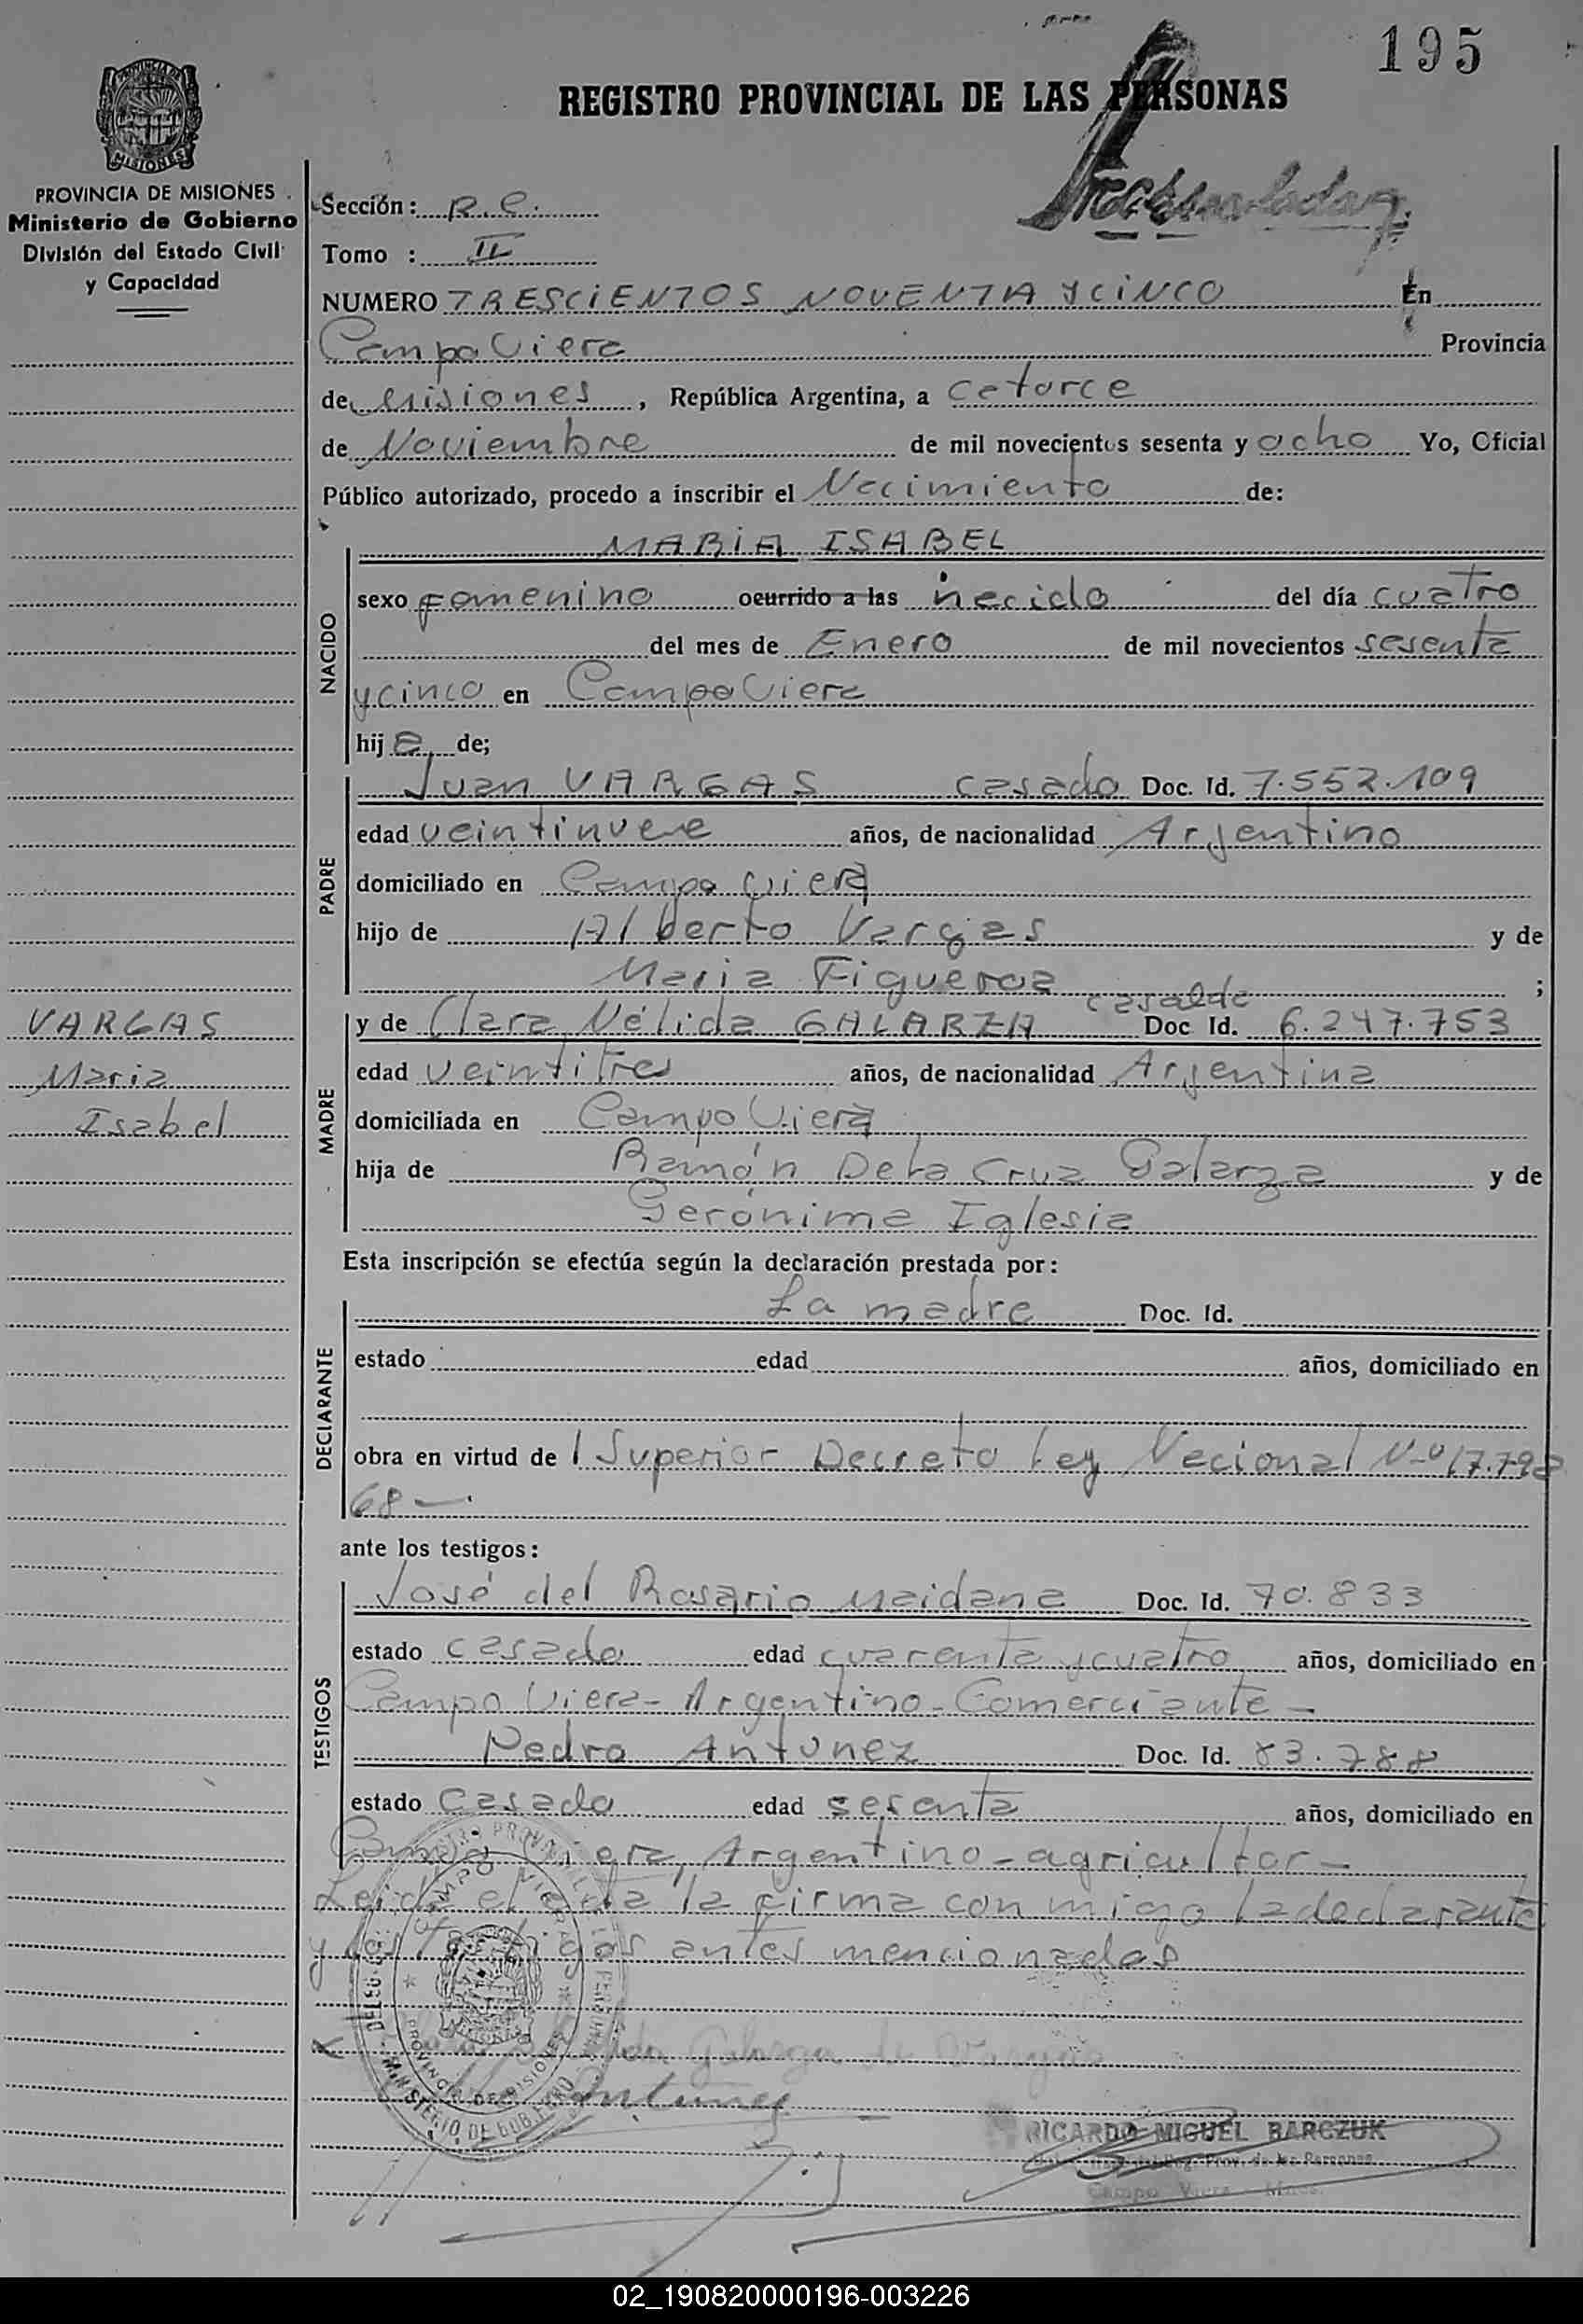 195
REGISTRO PROVINCIAL DE LAS PERSONAS
MISIONES
PROVINCIA DE MISIONES
Ministerio de Gobierno
División del Estado Civil
y Capacidad
Sección: R.C.
Tomo : II
NUMERO TRESCIENTOS NOVENTA Y CINCO En
Campo Viera Provincia
de Misiones, República Argentina, a catorce
de Noviembre de mil novecientos sesenta y ocho Yo, Oficial
Público autorizado, procedo a inscribir el Nacimiento de:
MARIA ISABEL
NACIDO
sexo Femenino ocurrido a las nacida del día cuatro
del mes de Enero de mil novecientos sesenta
y cinco en Campo Viera
hija de;
PADRE
Juan VARGAS casado Doc. Id. 7.552.109
edad veintinueve años, de nacionalidad Argentino
domiciliado en Campo Viera
hijo de Alberto Vargas y de
Maria Figueroa ;
VARGAS
Maria
Isabel
MADRE
y de Clara Nélida GALARZA casada Doc Id. 6.247.753
edad veintitres años, de nacionalidad Argentina
domiciliada en Campo Viera
hija de Ramón De la Cruz Galarza y de
Gerónima Iglesia
Esta inscripción se efectúa según la declaración prestada por:
DECLARANTE
La madre Doc. Id.
estado edad años, domiciliado en
obra en virtud de l Superior Decreto Ley Nacional N-º 17.798
68 —
ante los testigos:
TESTIGOS
José del Rosario Maidana Doc. Id. 70.833
estado casado edad cuarenta y cuatro años, domiciliado en
Campo Viera - Argentino - Comerciante -
Pedro Antunez Doc. Id. 83.788
estado Casado edad sesenta años, domiciliado en
Campo Viera, Argentino - agricultor -
Leida el acta la firma con migo la declarante
y los testigos antes mencionados
X Galarza de Vargas
Antunez
RICARDO MIGUEL BARCZUK
Reg. Prov. de las Personas
Campo Viera - Mnes.
02_190820000196-003226